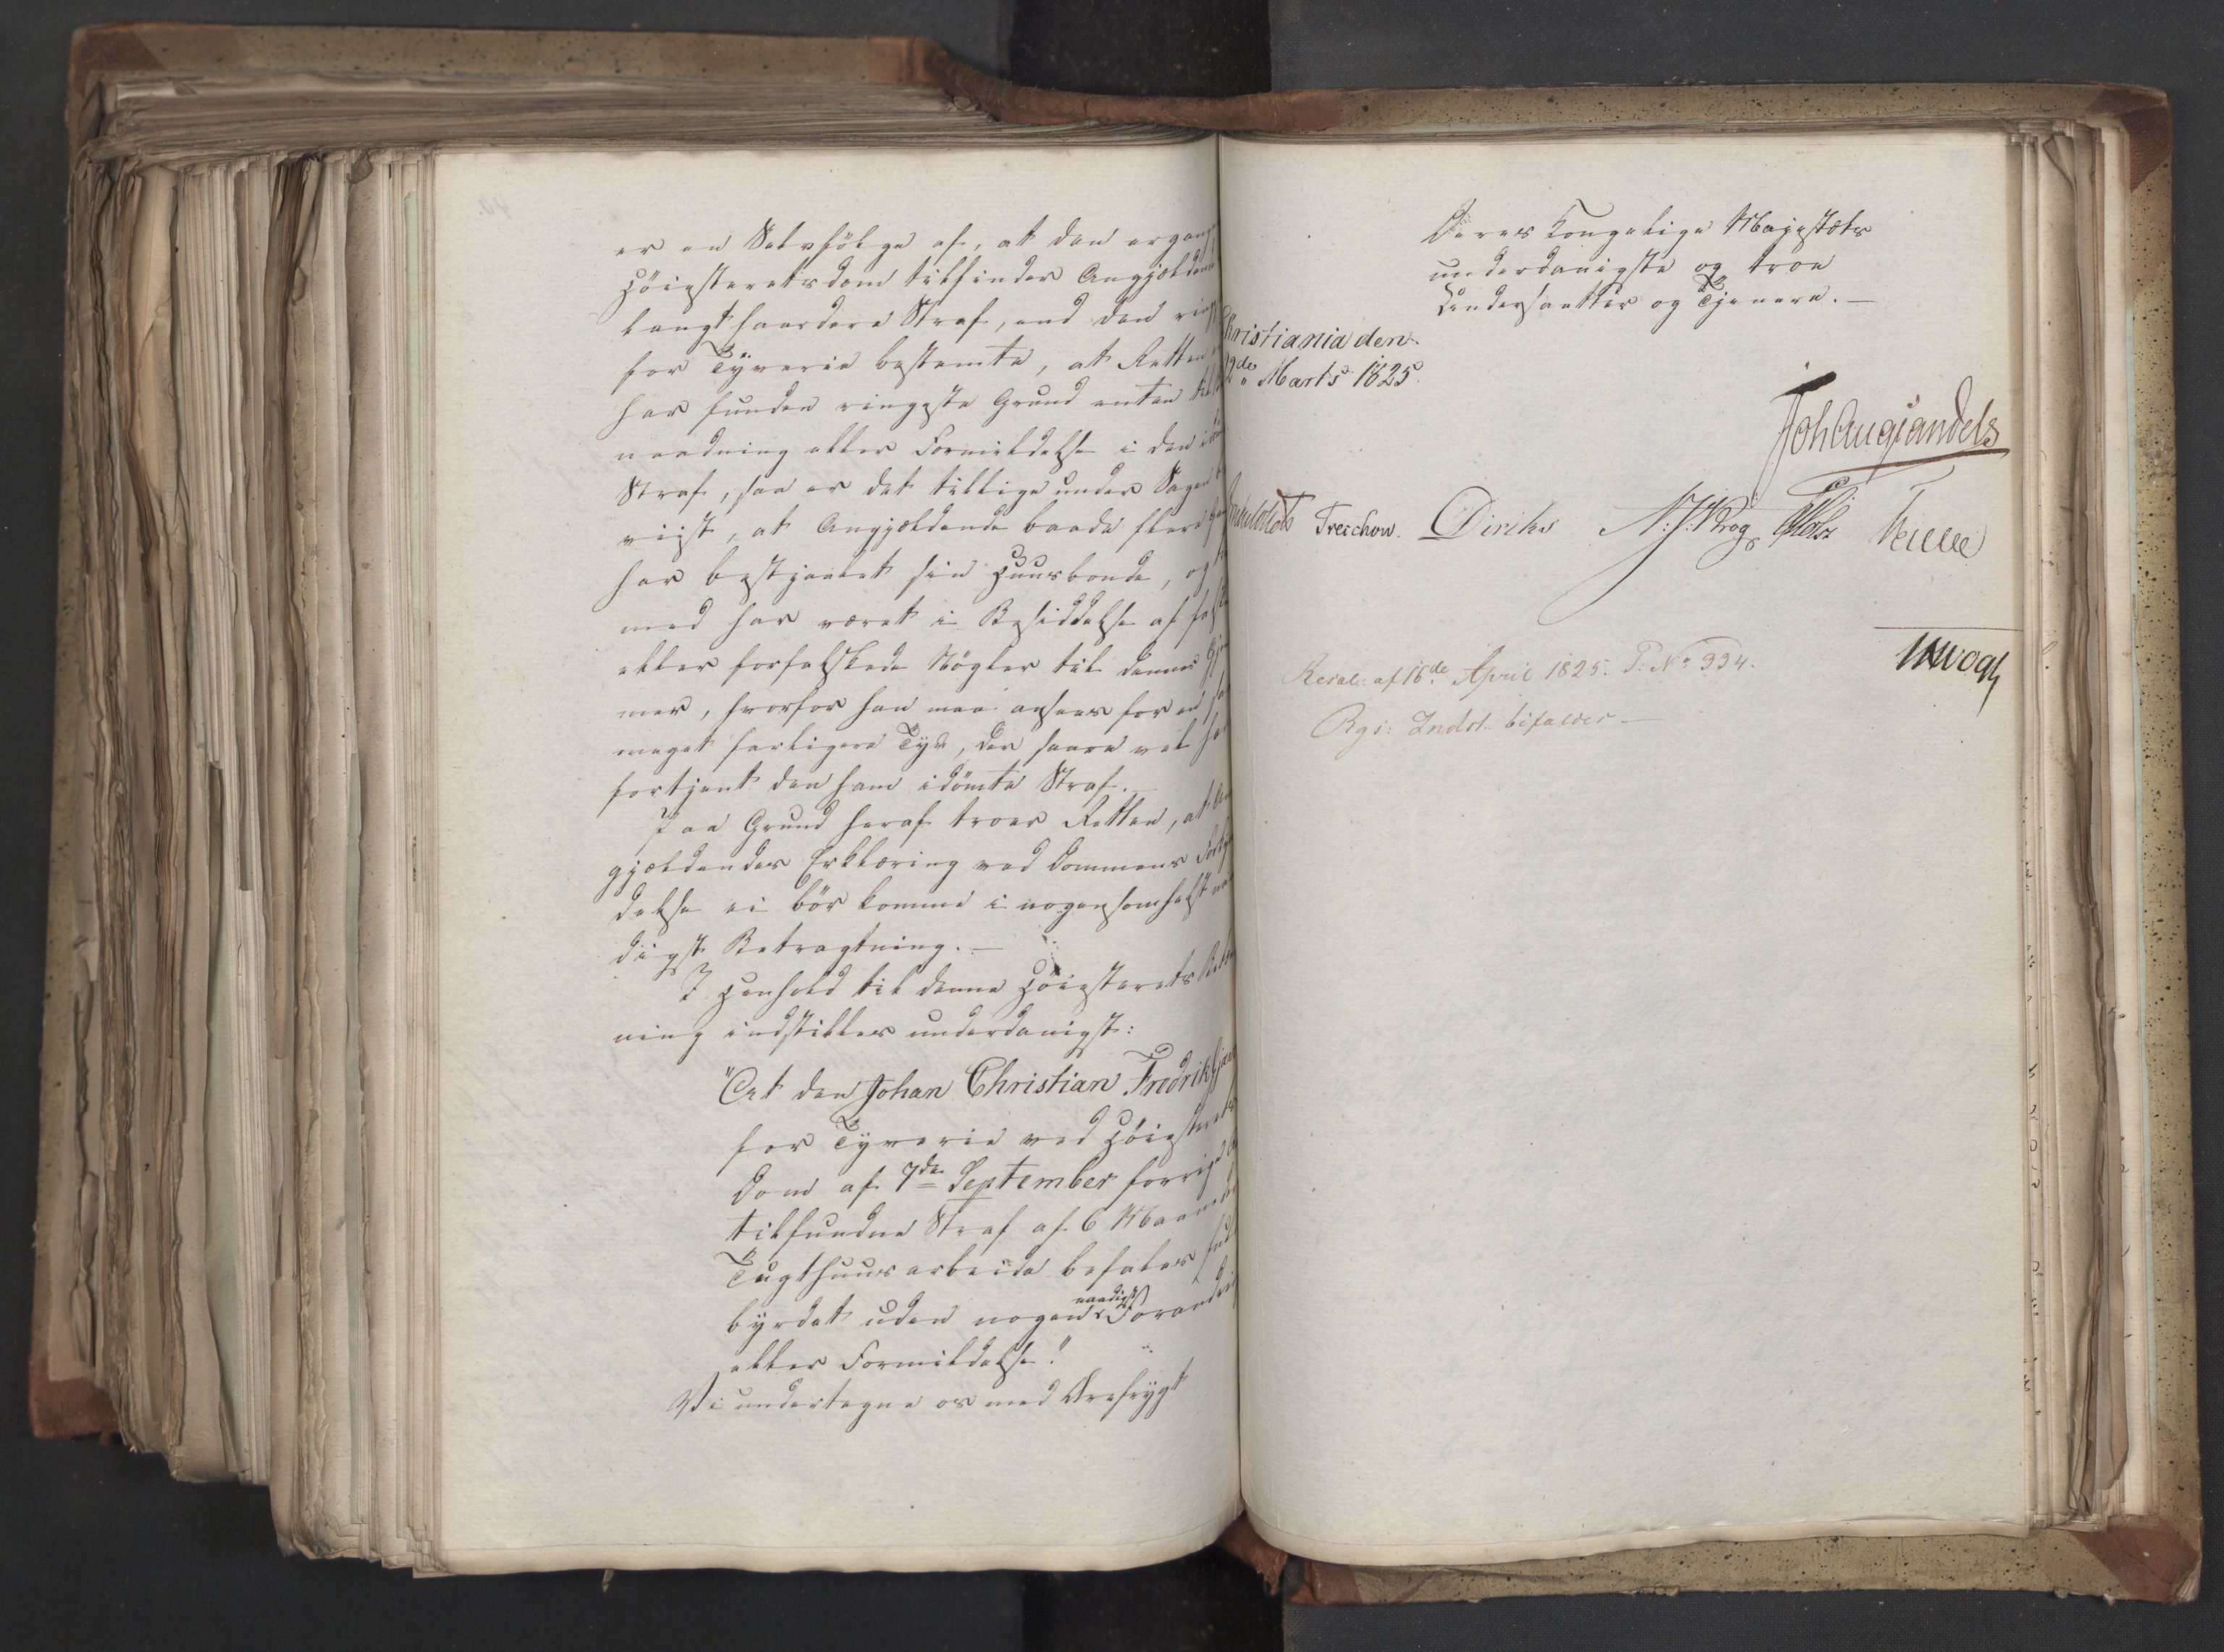 er en Selvfølge af, at den ergang
Høiesteretsdom tilfinder Angjældende
langt haardere Straf, end den ring
for Tyverie bestemte, at Retten
har funden ringeste Grund enten til
naadning eller Formildelse i den
Straf, saa er det tillige under Sagen
viist, at Angjældende baade flere
har bestjaalet sin Huusbonde, og
med har været i Besiddelse af
eller forfalskede Nøgler til dennes
mer, hvorfor han maa ansees for en
meget farligere Tyv, der saare vel
fortjent den ham idømte Straf. —
Paa Grund heraf troer Retten, at An
gjældendes Erklæring ved Dommens Forkyn
delse ei bør komme i nogensomhelst naa
digst Betragtning. —
I Henhold til denne Høiesterets Betænk
ning indstilles underdanigst:
"At den Johan Christian Fredriksen
for Tyverie ved Høiesterets
Dom af 7de September forrige
tilfundne Straf af 6 Maaneders
Tugthuusarbeide befales fuld
byrdet uden nogen naadigst Forandring
eller Formildelse."
Vi undertegne os med Ærefrygt
Deres Kongelige Majestæts
underdanigste og troe
Undersaatter og Tjenere. —
Christiania den
de Marts 1825.
Joh Aug Sandels
Treschow. Diriks N. J. Krog Holst
JHVogt
Resol: af 16de April 1825. P: No 334.
Rgs: Indst. bifalder —